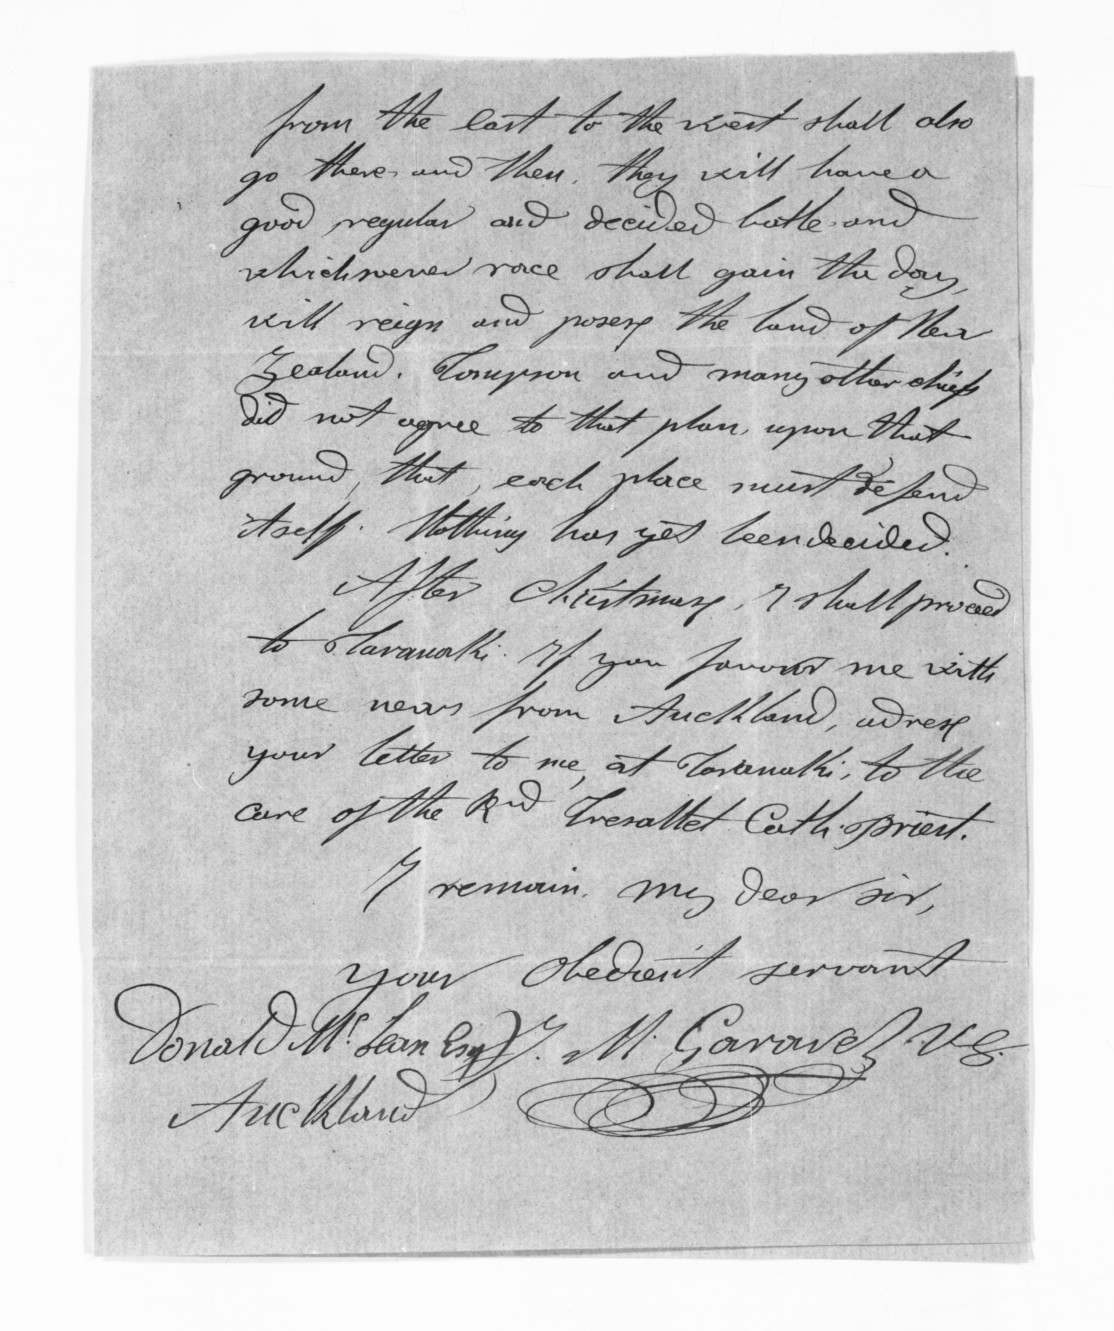 from the east to the west shall also
go there and then. they will have a
good regular and decided battle and
whichwever race shall gain the day,
will reign and posess the land of New
Zealand. Tompson and many other chiefs
did not agree to that plan, upon that
ground, that, each place must defend
itself. Nothing has yet been decided.
After Christmass, I shall proceed
to Taranaki. If you favour me with
some news from Auckland, adress
your letter to me, at Taranaki, to the
care of the Rvd Tresallet Cath. priest.
I remain. my dear sir,
your obedient servant
Donald Mc Lean Esq J. M. Garavel V.G.
Auckland